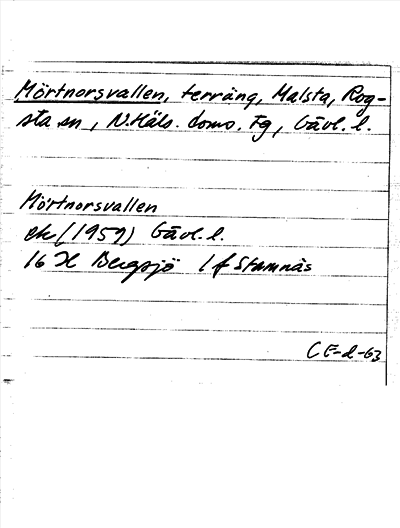 Mörtnorsvallen, terräng, Malsta, Rog-
sta sn, N.Häls. doms. Fg, Gävl. l.
Mörtnorsvallen
ek (1959) Gävl. l.
16 H Bergsjö 1 f Stamnäs
CE-d-63